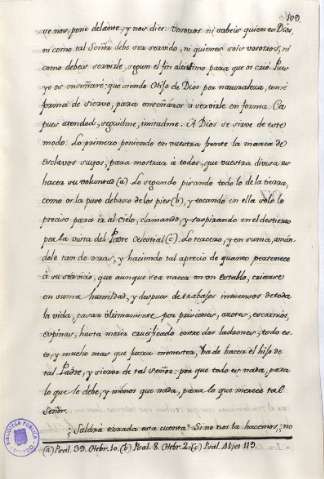 109
ne nos, pone delante, y nos dice: Vosotros ni sabeis quien es Dios
ni como tal Señor debe ser servido, ni quienes sois vosotros, ni
como debeis servirle, segun el fin altisimo para que os crió. Pues
yo os enseñaré: que siendo Hijo de Dios por naturaleza, tomé
forma de siervo, para enseñaros a servirle en forma. Ea
pues atended, seguidme, imitadme. A Dios se sirve de este
modo. Lo primero poniendo en nuestra frente la marca de
esclavos suyos, para mostrar à todos, que nuestra divisa es
hacer su voluntad (a) Lo segundo pisando todo lo de la tierra,
como se lo puso debaxo de los pies (b), y tocando en ella solo lo
preciso para ir al Cielo, clamando, y suspirando en el destierro
por la vista del Padre Celestial (c). Lo tercero, y en suma, amán-
dole tan de veras, y haciendo tal aprecio de quanto pertenece
à su servicio, que aunque sea nacer en un establo, criarse
en suma humildad, y despues de trabajos inmensos de toda
la vida, pasar ultimamente por prisiones, azotes, escarnios,
espinas, hasta morir crucificado entre dos ladrones, todo es-
to, y mucho mas que fuera menester, ha de hacer el hijo de
tal Padre, y siervo de tal Señor: por que todo es nada, para
lo que se debe, y menos que nada, para lo que merece tal
Señor.
¿Saldrá errada esa cuenta? Si no nos la hacemos, no
(a) Psal. 39. Hebr. 10. (b) Psal. 8. Hebr. 2. (c) Psal. 41 et 119.
BIBLIOTECA PUBLICA